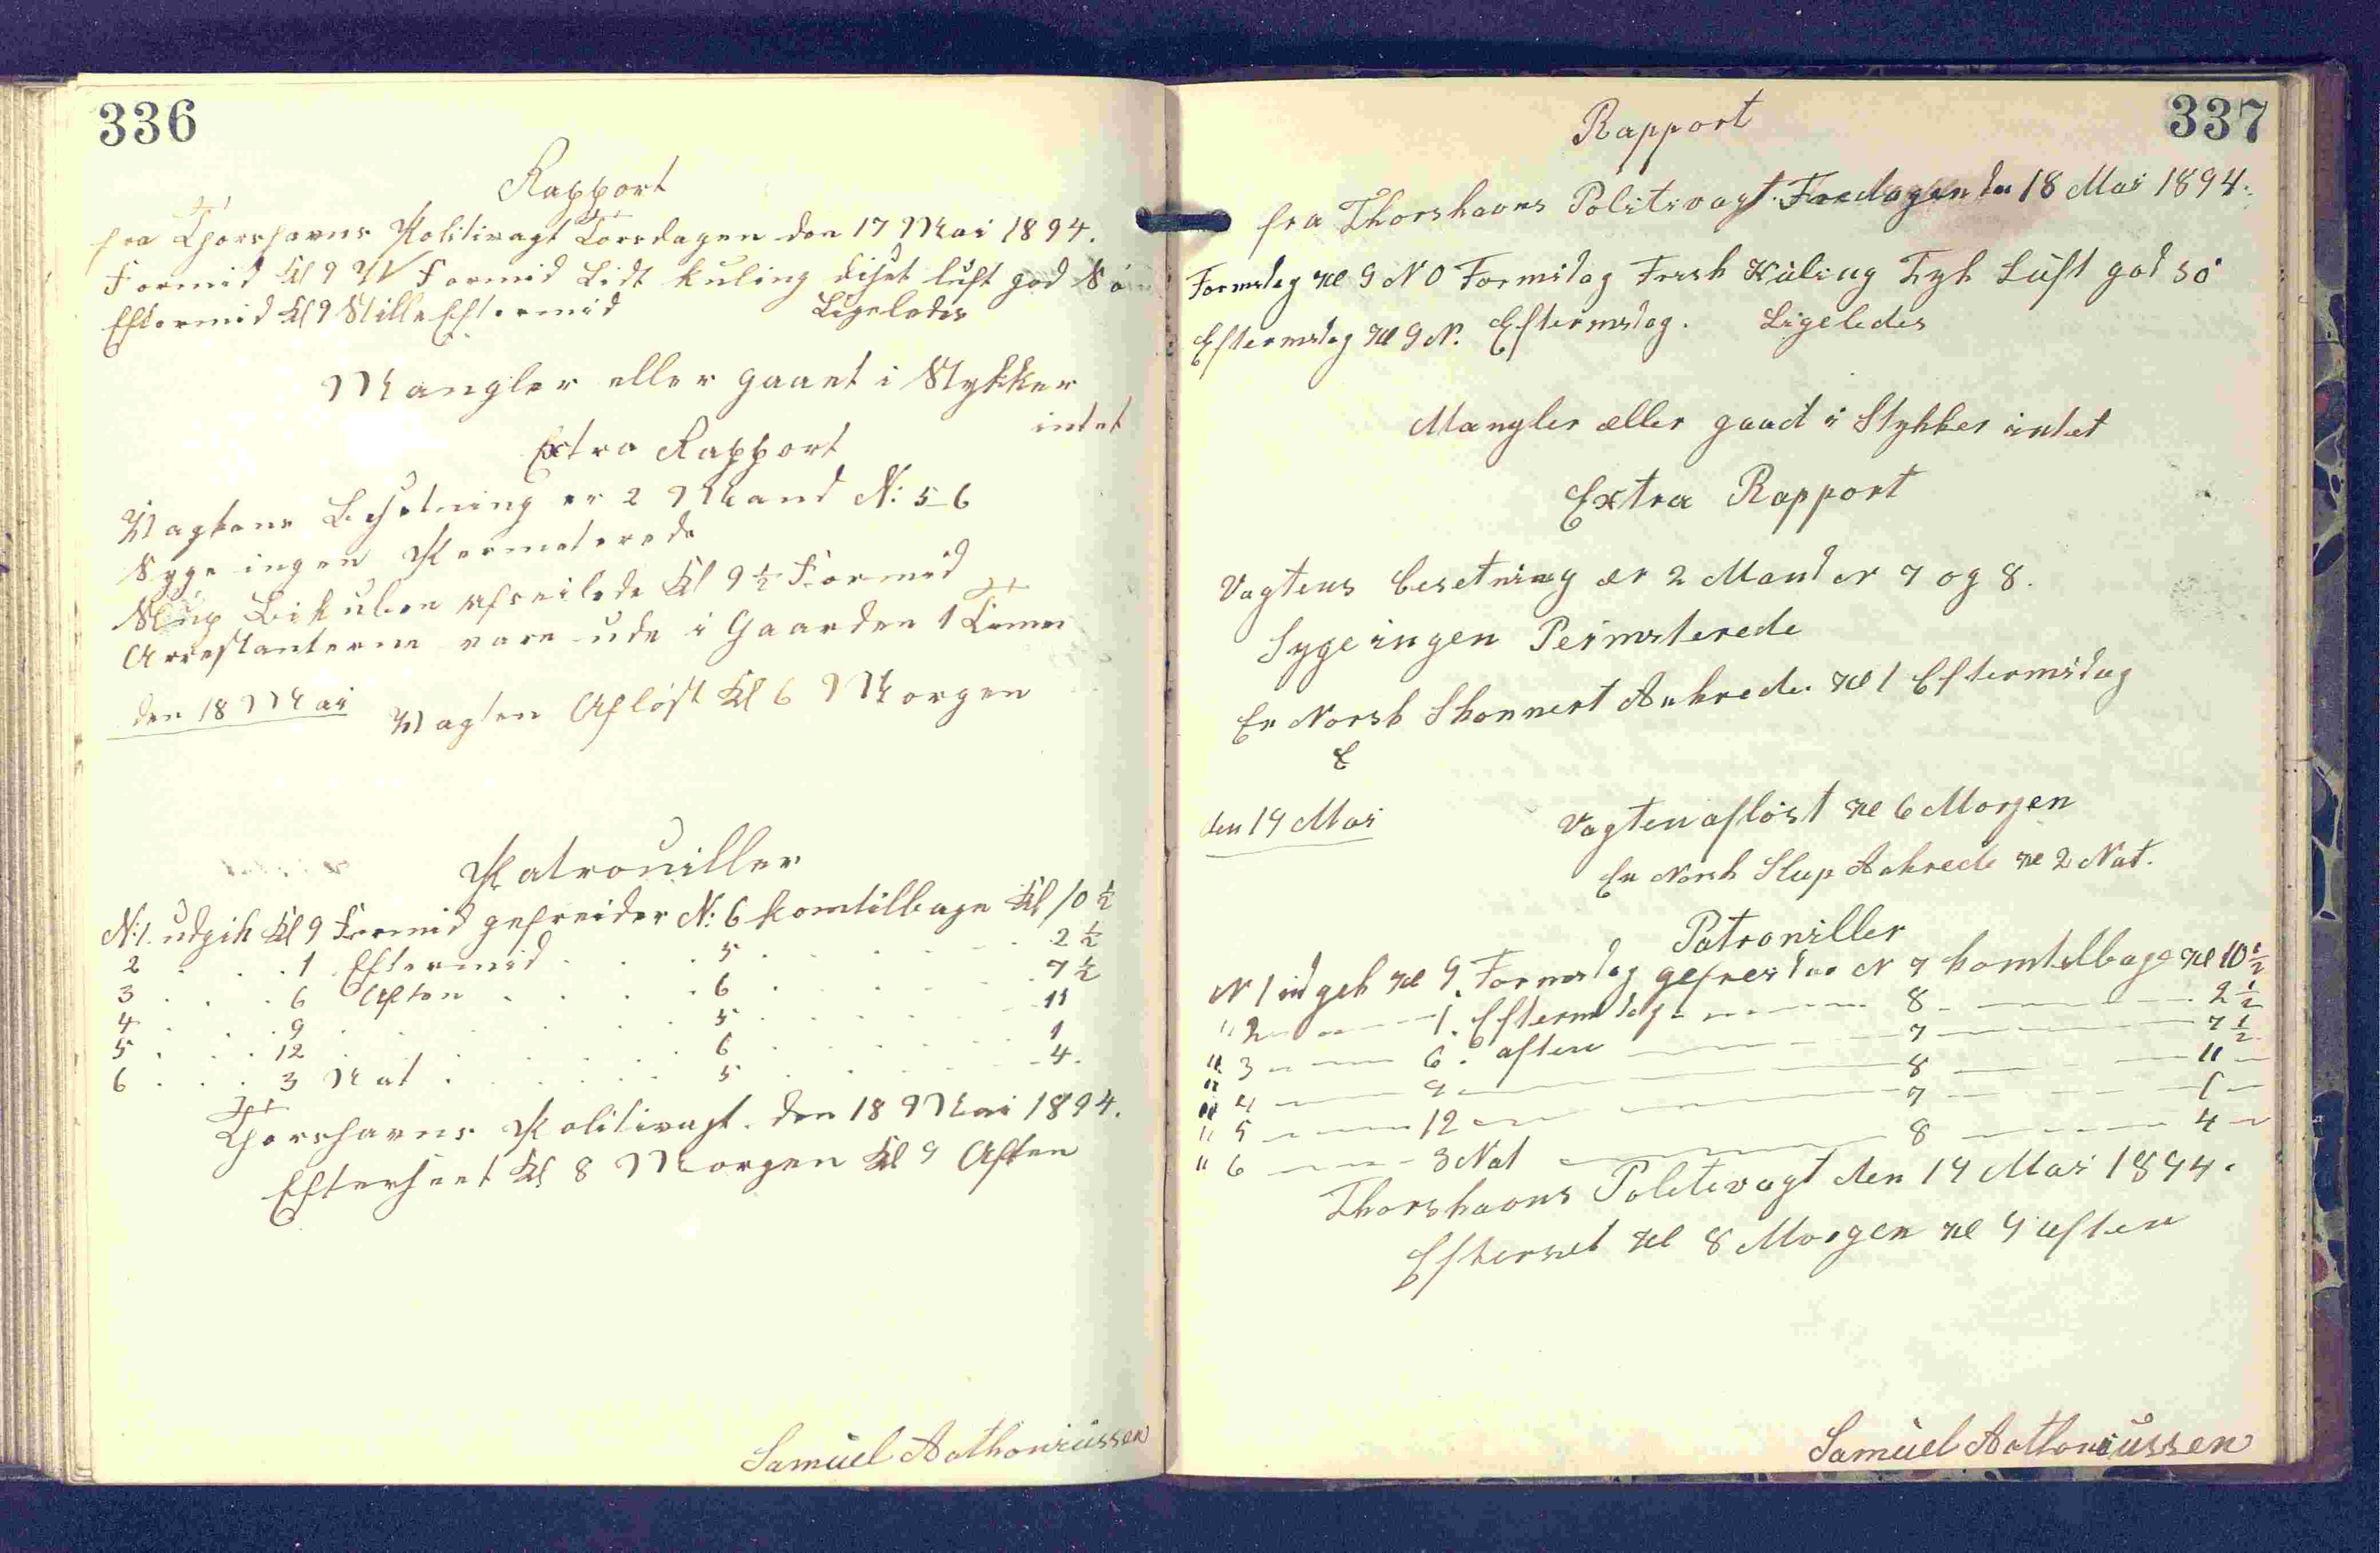 336
Rapport
fra Thorshavns Politivagt Torsdagen den 17 Mai 1894.
Formid Kl 9 W Formid Lidt kuling diset luft god Sö
Eftermid Kl 9 Stille Eftermid Ligeledes
Mangler eller gaaet i Stykker
intet
Extra Rapport
Vagtens Besetning er 2 Mand N: 5-6
Syge ingen Permeterede
Slup Bikuben afseilede Kl 9 ½ Formid
Arrestanterne vare ude i Gaarden 1 Time
den 18 Mai Vagten Afløst Kl 6 Morgen
Patrouiller
N:1. udgik Kl 9 Formid gefreider N: 6 kom tilbage Kl 10 ½
2 . . . 1 Eftermid . . . 5 . . . . 2 ½
3 . . . 6 Aften . . . . 6 . . . . 7 ½
4 . . . 9 . . . . . . 5 . . . . 11
5 . . . 12 . . . . . . 6 . . . . 1
6 . . . 3 Nat . . . . . 5 . . . . 4.
Thorshavns Politivagt. den 18 Mai 1894.
Efterseet Kl 8 Morgen Kl 9 Aften
Samuel Anthoniussen
337
Rapport
fra Thorshavns Politivagt. Fredagen den 18 Mai 1894.
Formdag Kl 9 N O Formidag Frisk Kuling Tyk Luft god sö
Eftermdag Kl 9 N. Eftermdag. Ligeledes
Mangler æller gaad i Stykker intet
Extra Rapport
Vagtens besetning er 2 Mand N 7 og 8.
Syge ingen Peimeterede
En Norsk Skonnert Ankrede Kl 1 Eftermidag
E
den 19 Mai Vagten afløst Kl 6 Morgen
En Norsk Slup Ankrede Kl 2 Nat.
Patrouiller
N 1 udgik Kl 9. Formdag gefreider N 7 kom telbage Kl 10 ½
" 2 — — — 1. Eftermdag — — — 8 — — — 2 ½
" 3 — — — 6. aften — — — 7 — — — 7 ½
" 4 — — — 9 — — — 8 — — — 11 —
" 5 — — — 12 — — — 7 — — — 1 —
" 6 — — — 3 Nat — — — 8 — — — 4 —
Thorshavns Politivagt den 19 Mai 1894.
Efterset Kl 8 Morgen Kl 9 aften
Samuel Anthoniussen